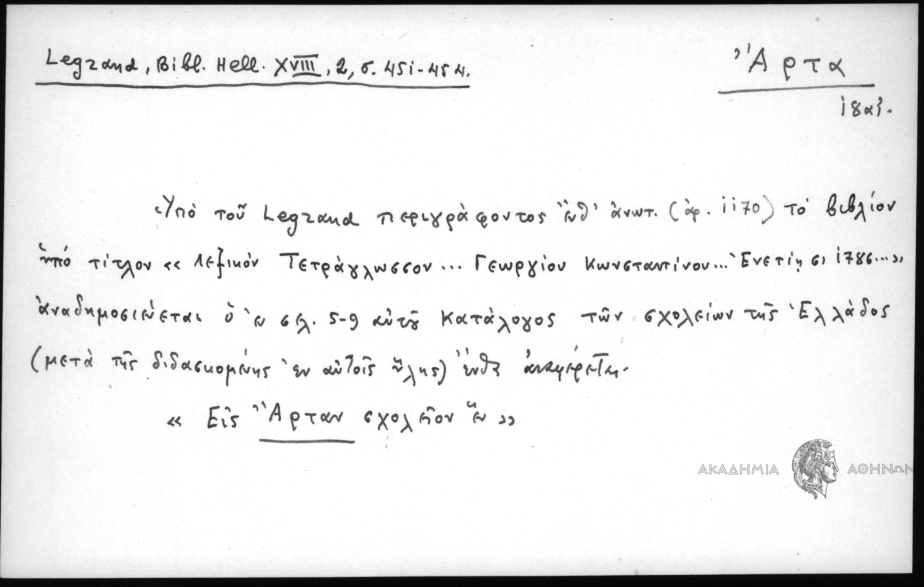 Legrand, Bibl. Hell. XVIII, 2, σ. 451-454.
Ἄρτα
Ὑπὸ τοῦ Legrand περιγράφοντος ἔνθ' ἀνωτ. (ἀρ. 1170) τὸ βιβλίον
ὑπό τίτλον « Λεξικόν Τετράγλωσσον... Γεωργίου Κωνσταντίνου... Ἐνετίησι 1786...»
ἀναδημοσιεύεται ὁ ἐν σελ. 5-9 αὐτοῦ Κατάλογος τῶν σχολείων τῆς Ἑλλάδος
(μετὰ τῆς διδασκομένης ἐν αὐτοῖς ὕλης) ἔνθα ἀναφέρεται.
« Εἰς Ἄρταν σχολεῖον ἕν »
ΑΚΑΔΗΜΙΑ ΑΘΗΝΩΝ